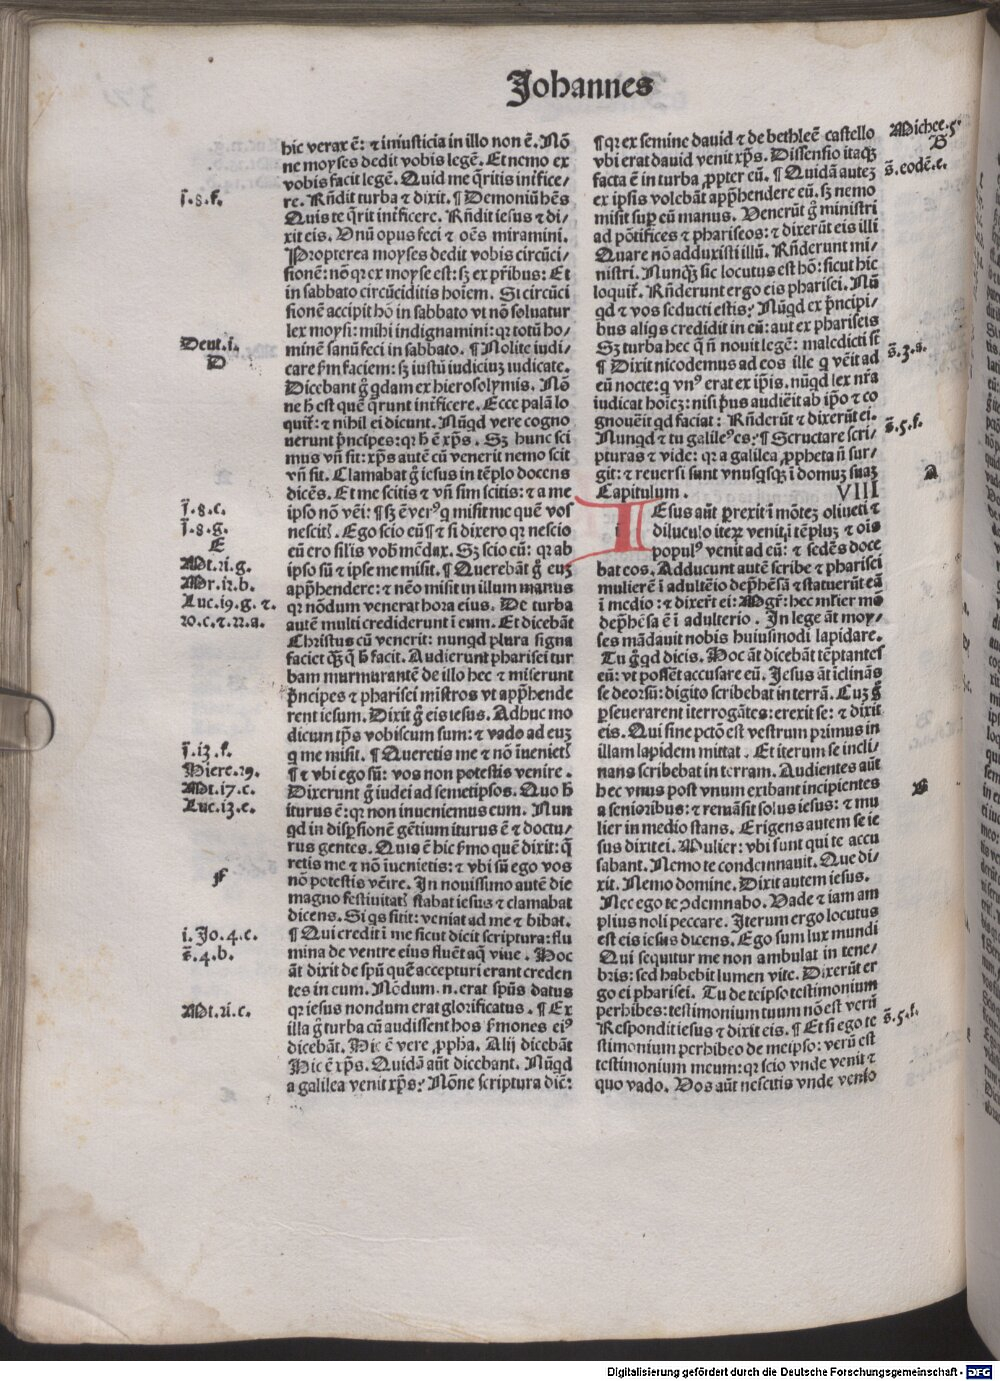 Johannes
hic verax ē: ⁊ iniusticia in illo non ē. Nō
ne moyses dedit vobis legē. Et nemo ex
vobis facit legē. Quid me q̄ritis int̄fice/
re. Rn̄dit turba ⁊ dixit. ¶ Demoniū hēs
Quis te q̄rit int̄ficere. Rn̄dit iesus ⁊ di/
xit eis. Vnū opus feci ⁊ oēs miramini.
Propterea moyses dedit vobis circūci/
sionē: nō qꝛ ex moyse est: sꝫ ex pr̄ibus: Et
in sabbato circūciditis hoiem. Si circūci
sionē accipit hō in sabbato vt nō soluatur
lex moysi: mihi indignamini: qꝛ totū ho/
minē sanū feci in sabbato. ¶ Nolite iudi/
care ẜm faciem: sꝫ iustū iudiciuꝫ iudicate.
Dicebant g̊ qdam ex hierosolymis. Nō
ne h̄ est quē q̄runt int̄ficere. Ecce palā lo
quit̄: ⁊ nihil ei dicunt. Nūqd vere cogno
uerunt p̄ncipes: qꝛ h̄ ē xp̄s. Sꝫ hunc sci
mus vn̄ sit: xp̄s autē cū venerit nemo scit
vn̄ sit. Clamabat g̊ iesus in tēplo docens
dicēs. Et me scitis ⁊ vn̄ sim scitis: ⁊ a me
ipso nō vēi: ¶ sꝫ ē verꝰ q misit me quē vos
nescitꝭ. Ego scio eū ¶ ⁊ si dixero qꝛ nescio
eū ero sil̄is vob̄ mēdax. Sꝫ scio eū: qꝛ ab
ipso sū ⁊ ipse me misit. ¶ Querebāt g̊ euꝫ
app̄hendere: ⁊ nēo misit in illum manus
qꝛ nōdum venerat hora eius. De turba
autē multi crediderunt ī eum. Et dicebāt
Christus cū venerit: nunqd plura signa
faciet qꝫ q̄ h̄ facit. Audierunt pharisei tur
bam murmurantē de illo hec ⁊ miserunt
p̄ncipes ⁊ pharisei mīstros vt app̄hende
rent iesum. Dixit g̊ eis iesus. Adhuc mo
dicum tp̄s vobiscum sum: ⁊ vado ad euꝫ
q me misit. ¶ Queretis me ⁊ nō īuenietꝭ
¶ ⁊ vbi ego sū: vos non potestis venire.
Dixerunt g̊ iudei ad semetipsos. Quo h̄
iturus ē: qꝛ non inueniemus eum. Nun
qd in disp̄sionē gētium iturus ē ⁊ doctu/
rus gentes. Quis ē hic ẜmo quē dixit: q̄
retis me ⁊ nō īuenietis: ⁊ vbi sū ego vos
nō potestis vēire. In nouissimo autē die
magno festiuitatꝭ stabat iesus ⁊ clamabat
dicens. Si qs sitit: veniat ad me ⁊ bibat.
¶ Qui credit ī me sicut dicit scriptura: flu
mina de ventre eius fluēt aq̄ viue. Hoc
āt dixit de spū quē accepturi erant creden
tes in eum. Nōdum .n. erat spūs datus
qꝛ iesus nondum erat glorificatus. ¶ Ex
illa g̊ turba cū audissent hos ẜmones eiꝰ
dicebāt. Hic ē vere ꝓpha. Alij dicebāt
Hic ē xp̄s. Quidā aūt dicebant. Nūqd
a galilea venit xp̄s? Nōne scriptura diē:
ī.8.f.
Deut.i.
D
ī.8.c.
ī.8.g.
E
Mt.ri.g.
Mr.i2.b.
Luc.i9.g. ⁊.
20.c.⁊.22.a.
ī.i3.f.
Hiere.29.
Mt.i7.c.
Luc.i3.e.
F
i.Jo.4.c.
s̄.4.b.
Mt.ri.c.
¶ qꝛ ex semine dauid ⁊ de bethleē castello
vbi erat dauid venit xp̄s. Dissensio itaqꝫ
facta ē in turba ꝓpter eū. ¶ Quidā auteꝫ
ex ipsis volebāt app̄hendere eū. sꝫ nemo
misit sup̄ eū manus. Venerūt g̊ ministri
ad pōtifices ⁊ phariseos: ⁊ dixerūt eis illi
Quare nō adduxisti illū. Rn̄derunt mi/
nistri. Nunqꝫ sic locutus est hō: sicut hic
loquit̄. Rn̄derunt ergo eis pharisei. Nū
qd ⁊ vos seducti estis? Nūqd ex p̄ncipi/
bus aliqs credidit in eū: aut ex phariseis
Sꝫ turba hec q̄ n̄ nouit legē: maledicti st̄
¶ Dixit nicodemus ad eos ille q vēit ad
eū nocte: q vnꝰ erat ex ip̄is. nūqd lex nr̄a
iudicat hoīeꝫ: nisi p̄us audiēit ab ip̄o ⁊ co
gnouēit qd faciat: Rn̄derūt ⁊ dixerūt ei.
Nunqd ⁊ tu galileꝰ es? ¶ Scructare scri/
pturas ⁊ vide: qꝛ a galilea ꝓpheta n̄ sur/
git: ⁊ reuersi sunt vnusqsqꝫ ī domuꝫ suaꝫ
Capitulum. VIII
IEsus aūt prexit ī mōteꝫ oliueti ⁊
diluculo iteꝝ venit ī tēpluꝫ ⁊ ois
populꝰ venit ad eū: ⁊ sedēs doce
bat eos. Adducunt autē scribe ⁊ pharisei
mulierē ī adultēio dep̄hēsā ⁊ statuerūt eā
ī medio: ⁊ dixer̄t ei: Mgr̄: hec ml̄ier mō
dep̄hēsa ē ī adulterio. In lege āt moy/
ses mādauit nobis huiusmodi lapidare.
Tu g̊ qd dicis. Hoc āt dicebāt tēptantes
eū: vt possēt accusare eū. Jesus āt īclinās
se deorsū: digito scribebat in terrā. Cuꝫ g̊
ꝑseuerarent īterrogātes: erexit se: ⁊ dixit
eis. Qui sine pctō est vestrum primus in
illam lapidem mittat. Et iterum se incli/
nans scribebat in terram. Audientes aūt
hec vnus post vnum exibant incipientes
a senioribus: ⁊ remāsit solus iesus: ⁊ mu
lier in medio stans. Erigens autem se ie
sus dixit ei. Mulier: vbi sunt qui te accu
sabant. Nemo te condemnauit. Que di/
xit. Nemo domine. Dixit autem iesus.
Nec ego te ꝯdemnabo. Vade ⁊ iam am
plius noli peccare. Iterum ergo locutus
est eis iesus dicens. Ego sum lux mundi
Qui sequitur me non ambulat in tene/
bris: sed habebit lumen vite. Dixerūt er
go ei pharisei. Tu de teipso testimonium
perhibes: testimonium tuum nō est verū
Respondit iesus ⁊ dixit eis. ¶ Et si ego te
stimonium perhibeo de meipso: verū est
testimonium meum: qꝛ scio vnde veni ⁊
quo vado. Vos aūt nescitis vnde venio
Michee.5.
B
s̄.eodē.e.
s̄.3.a.
s̄.5.f.
A
B
s̄.5.f.
Digitalisierung gefördert durch die Deutsche Forschungsgemeinschaft - DFG